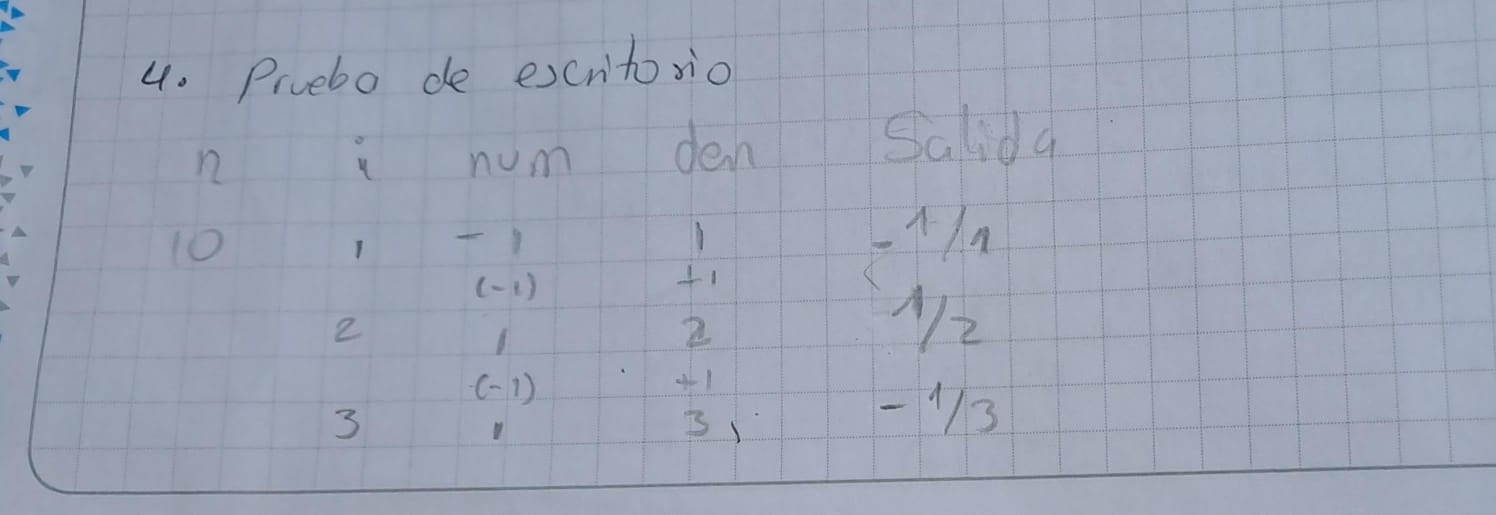 4. Prueba de escritorio
n i num den Salida
10 1 -1 1 -1/1
(-1) +1
2 1 2 1/2
(-1) +1
3 1 3, -1/3